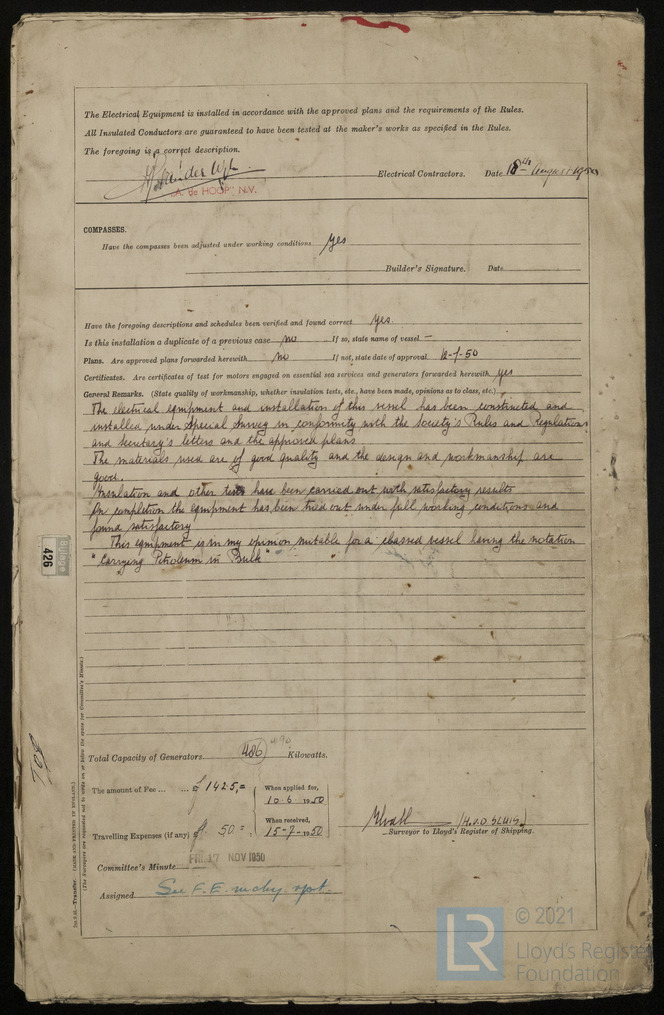 The Electrical Equipment is installed in accordance with the approved plans and the requirements of the Rules.
All Insulated Conductors are guaranteed to have been tested at the maker's works as specified in the Rules.
The foregoing is a correct description.
"A. de HOOP" N.V. Electrical Contractors. Date 18th August 1950
COMPASSES.
Have the compasses been adjusted under working conditions yes
Builder's Signature. Date
Have the foregoing descriptions and schedules been verified and found correct yes.
Is this installation a duplicate of a previous case no If so, state name of vessel —
Plans. Are approved plans forwarded herewith no If not, state date of approval 12-1-50
Certificates. Are certificates of test for motors engaged on essential sea services and generators forwarded herewith yes
General Remarks. (State quality of workmanship, whether insulation tests, etc., have been made, opinions as to class, etc.)
The electrical equipment and installation of this vessel has been constructed and
installed under Special Survey in conformity with the Society's Rules and Regulations
and Secretary's letters and the approved plans
The materials used are of good quality and the design and workmanship are
good.
Insulation and other tests have been carried out with satisfactory results
On completion the equipment has been tried out under full working conditions and
found satisfactory
This equipment is in my opinion, suitable for a classed vessel having the notation
"Carrying Petroleum in Bulk"
426
708
Total Capacity of Generators 406 Kilowatts.
The amount of Fee ... ... ƒ 1425,= When applied for, 10.6.1950
Travelling Expenses (if any) ƒ. 50 = When received, 15-7-1950
(H.V.D SLUIS.)
Surveyor to Lloyd's Register of Shipping.
Committee's Minute FRI. 17 NOV 1950
Assigned See F.E. mchy. rpt.
Transfer. (MADE AND PRINTED IN ENGLAND.)
(The Surveyors are requested not to write on or below the space for Committee's Minute.)
LR © 2021
Lloyd's Register
Foundation